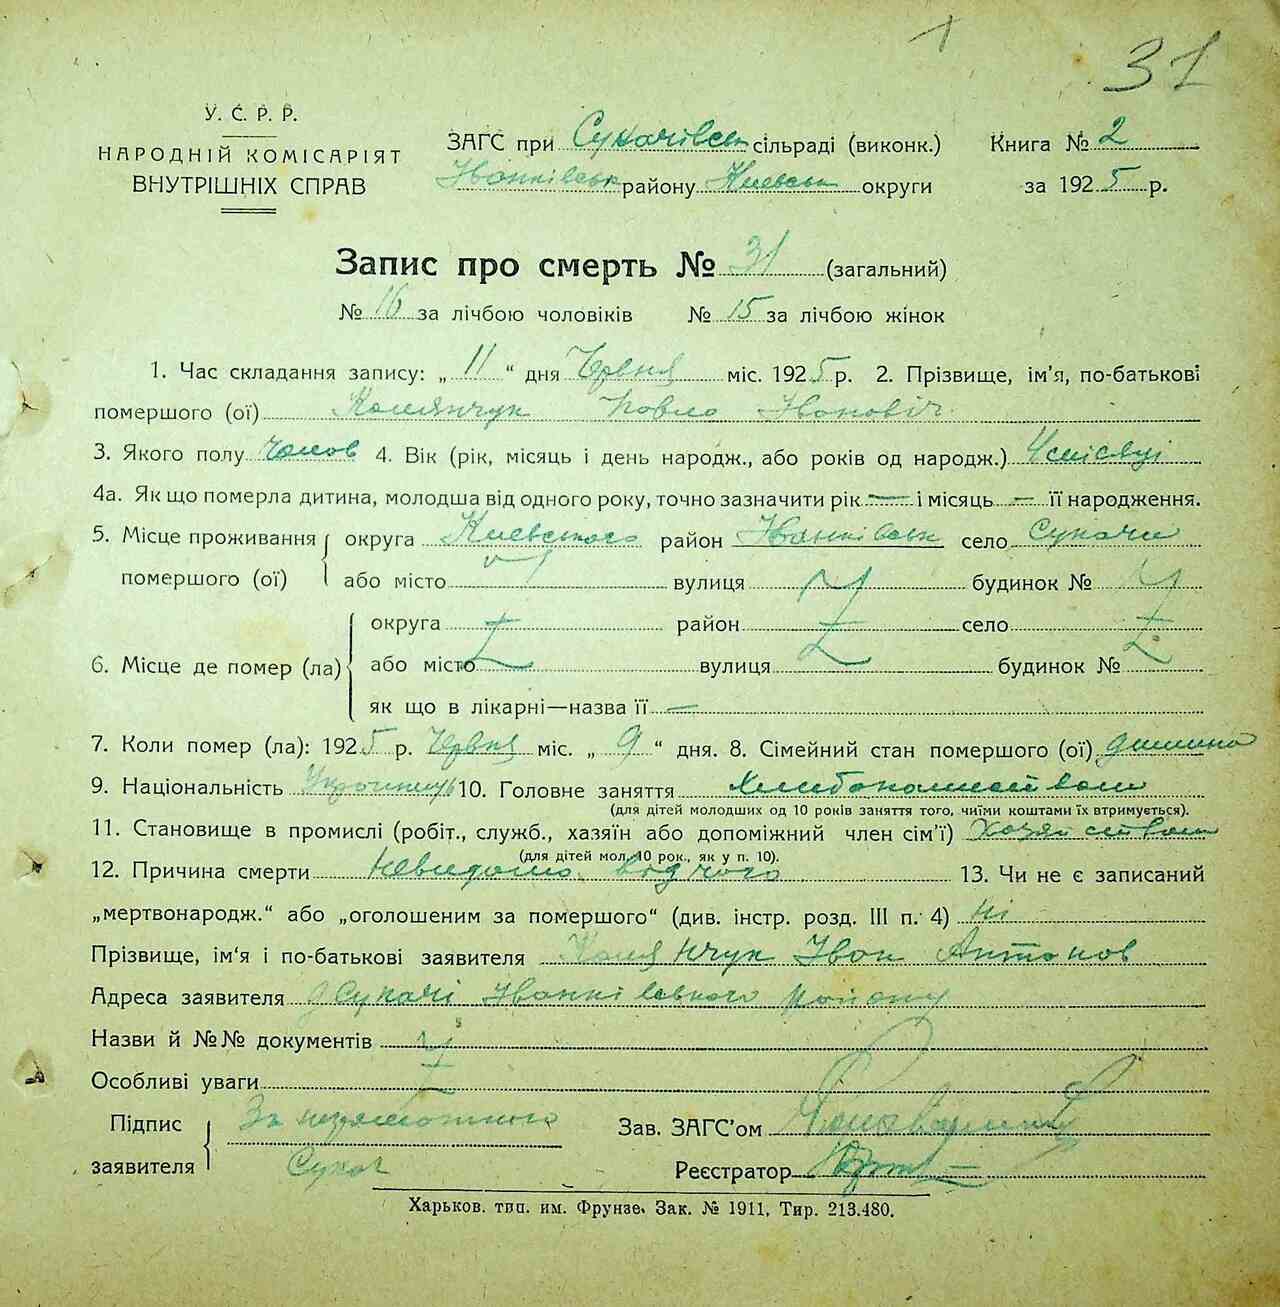 31
У. С. Р. Р.
НАРОДНІЙ КОМІСАРІЯТ
ВНУТРІШНІХ СПРАВ
ЗАГС при Сукачівськ сільраді (виконк.) Книга № 2
Іванківськ району Київськ округи за 1925 р.
Запис про смерть № 31 (загальний)
№ 16 за лічбою чоловіків № 15 за лічбою жінок
1. Час складання запису: „ 11 “ дня Червня міс. 1925 р. 2. Прізвище, ім'я, по-батькові
помершого (ої) Колянчук Повло Іванович
3. Якого полу Чолов 4. Вік (рік, місяць і день народж., або років од народж.) 4 місяці
4а. Як що померла дитина, молодша від одного року, точно зазначити рік — і місяць — її народження.
5. Місце проживання помершого (ої) округа Киевського район Іванківськ село Сукачи
або місто вулиця будинок №
6. Місце де помер (ла) округа район село
або місто вулиця будинок №
як що в лікарні—назва її —
7. Коли помер (ла): 1925 р. Червня міс. „ 9 “ дня. 8. Сімейний стан помершого (ої) дитина
9. Національність 10. Головне заняття Хлибопашеством
(для дітей молодших од 10 років заняття того, чиїми коштами їх втримується).
11. Становище в промислі (робіт., служб., хазяїн або допоміжний член сім'ї)
(для дітей мол. 10 рок., як у п. 10).
12. Причина смерти Невидомо від чого 13. Чи не є записаний
„мертвонародж.“ або „оголошеним за помершого“ (див. інстр. розд. III п. 4) Ні
Прізвище, ім'я і по-батькові заявителя Колянчук Іван Антонов
Адреса заявителя Сукачі Іванківского району
Назви й №№ документів
Особливі уваги
Підпис заявителя За неграмотного
Сукач
Зав. ЗАГС'ом
Реєстратор
Харьков. тип. им. Фрунзе. Зак. № 1911, Тир. 213.480.